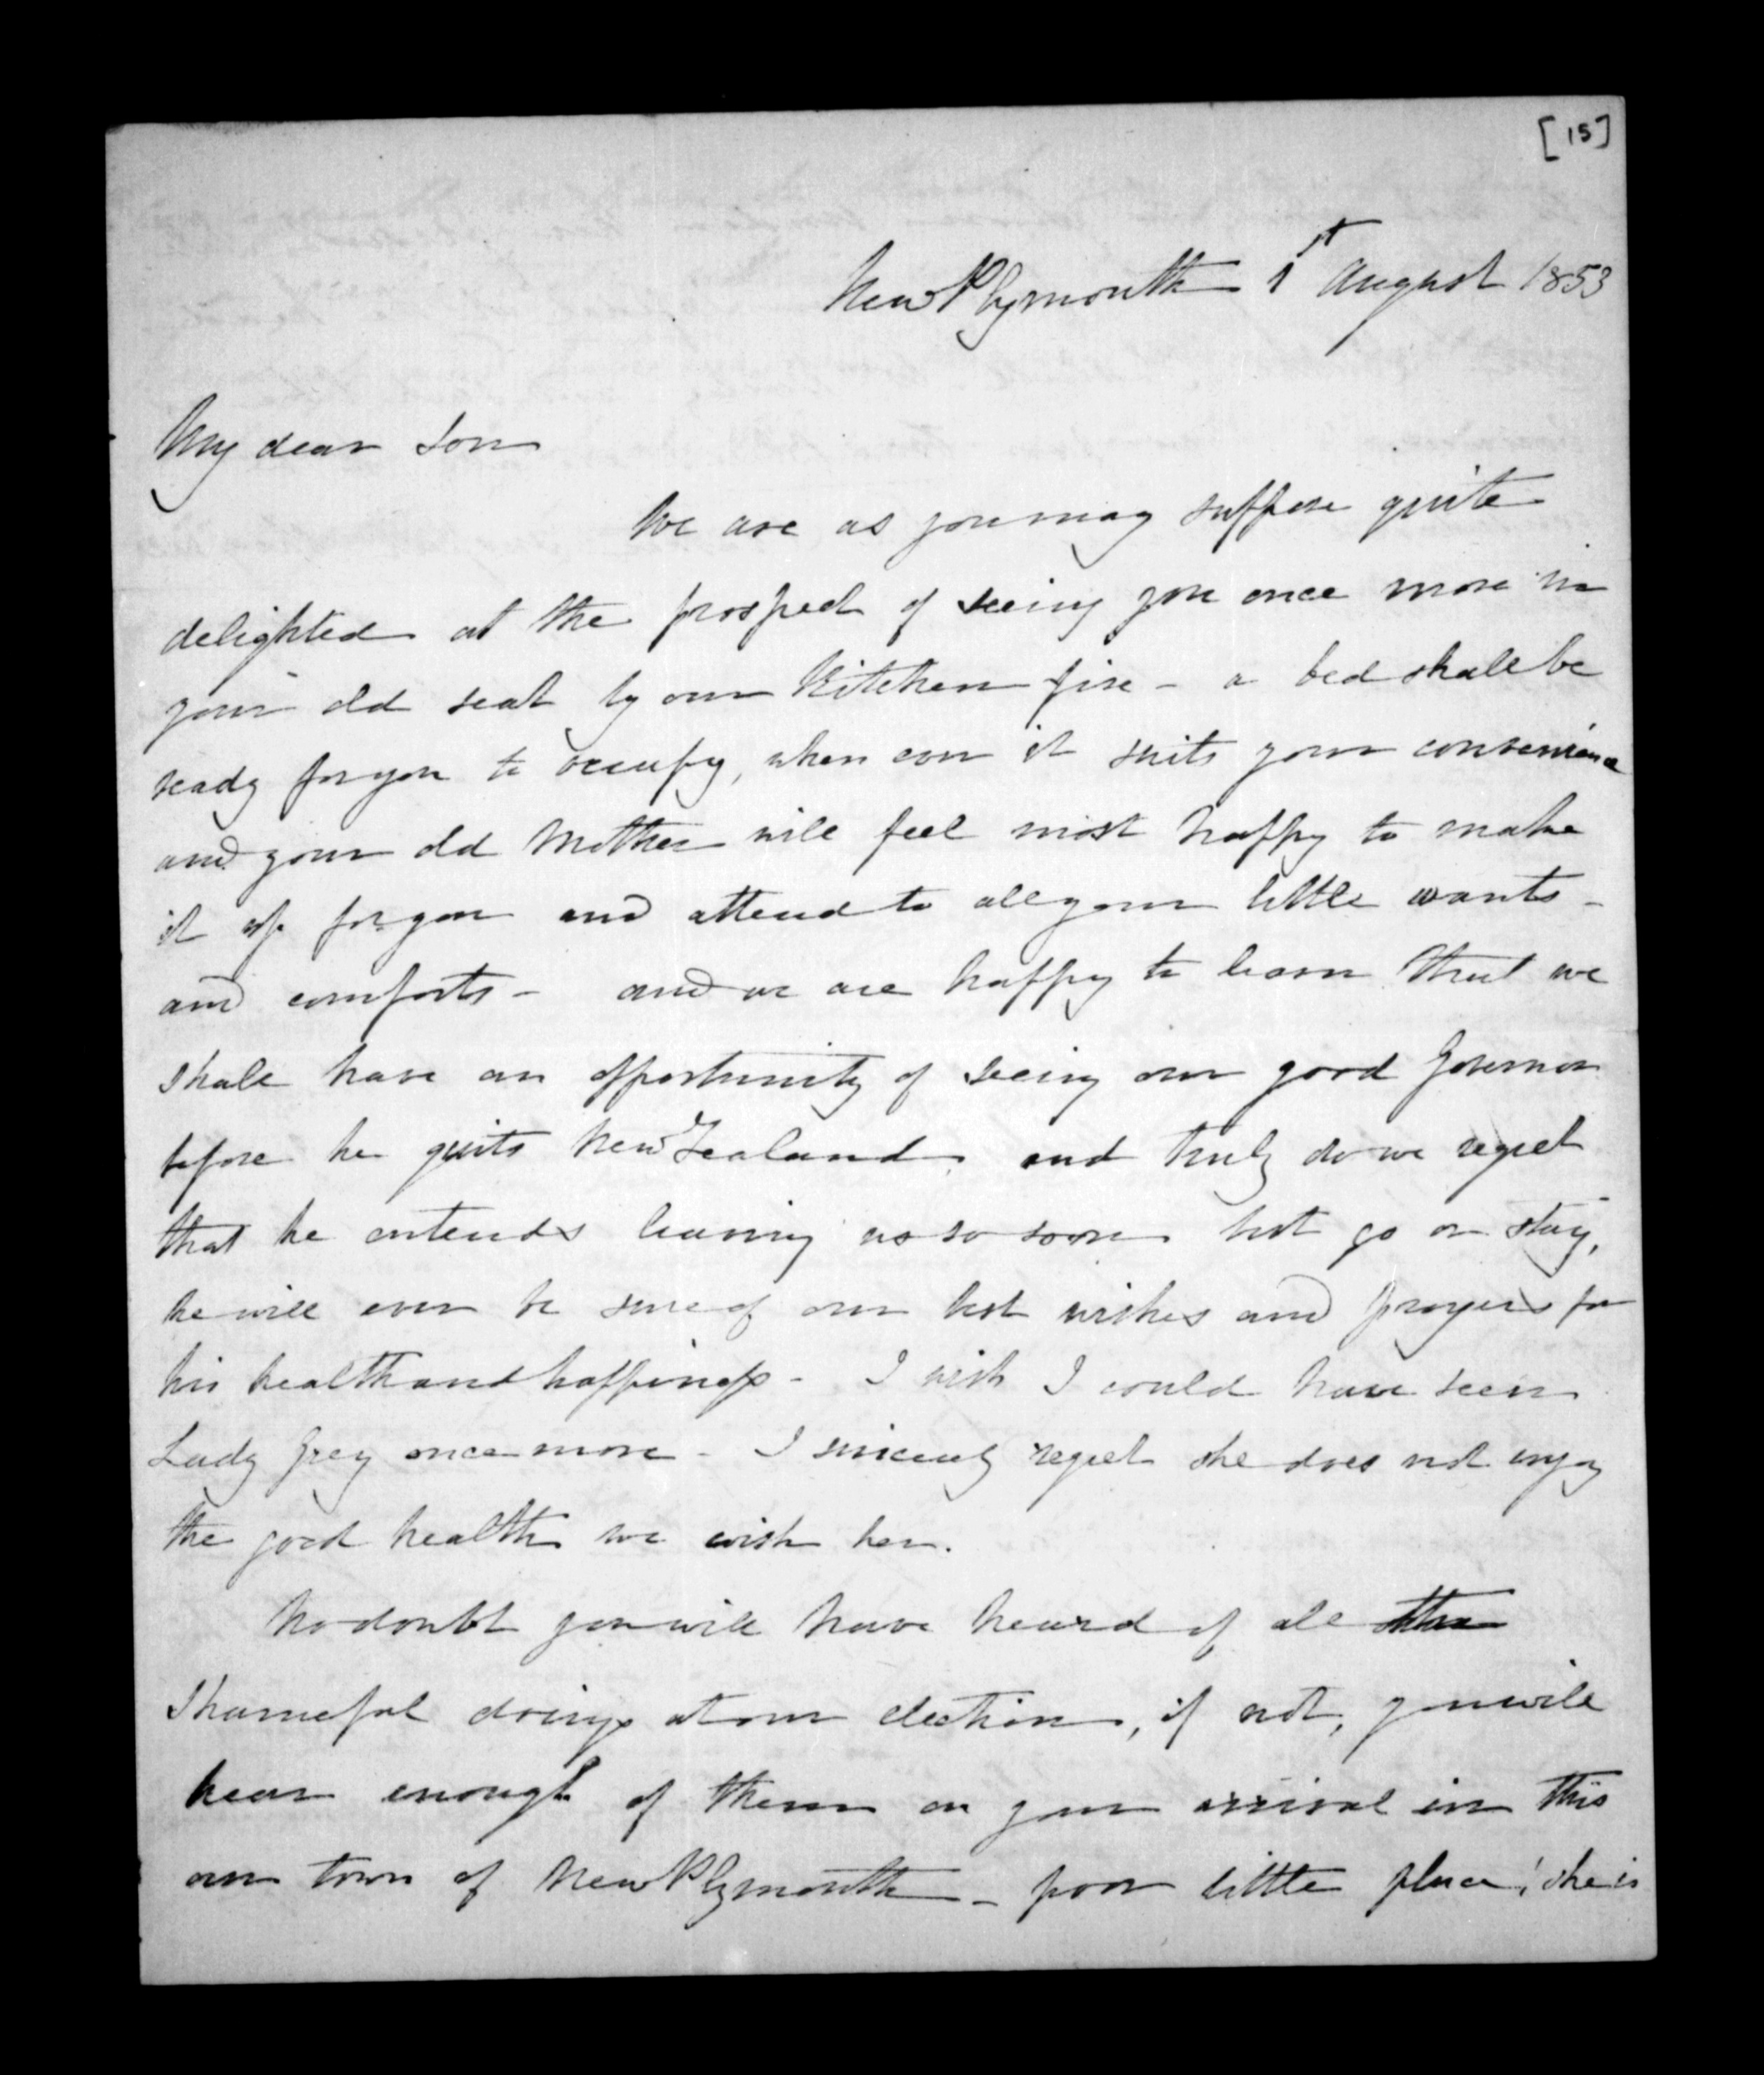 [15]
New Plymouth 1st August 1853
My dear Son
We are as you may suppose quite
delighted at the prospect of seeing you once more in
your old seat by our Kitchen fire - a bed shall be
ready for you to occupy, when ever it suits your convenience
and your old Mother will feel most happy to make
it up for you and attend to all your little wants -
and comforts - and we are happy to learn that we
shall have an opportunity of seeing our good Governor
before he quits New Zealand, and truly do we regret
that he entends leaving us so soon but go or stay,
he will ever be sure of our best wishes and prayers for
his health and happiness - I wish I could have seen
Lady Grey once more - I sincerely regret she does not enjoy
the good health we wish her.
No doubt you will have heard of all the
shameful doings at our election, if not, you will
hear enough of them on your arrival in this
our town of New Plymouth - poor little place! she is